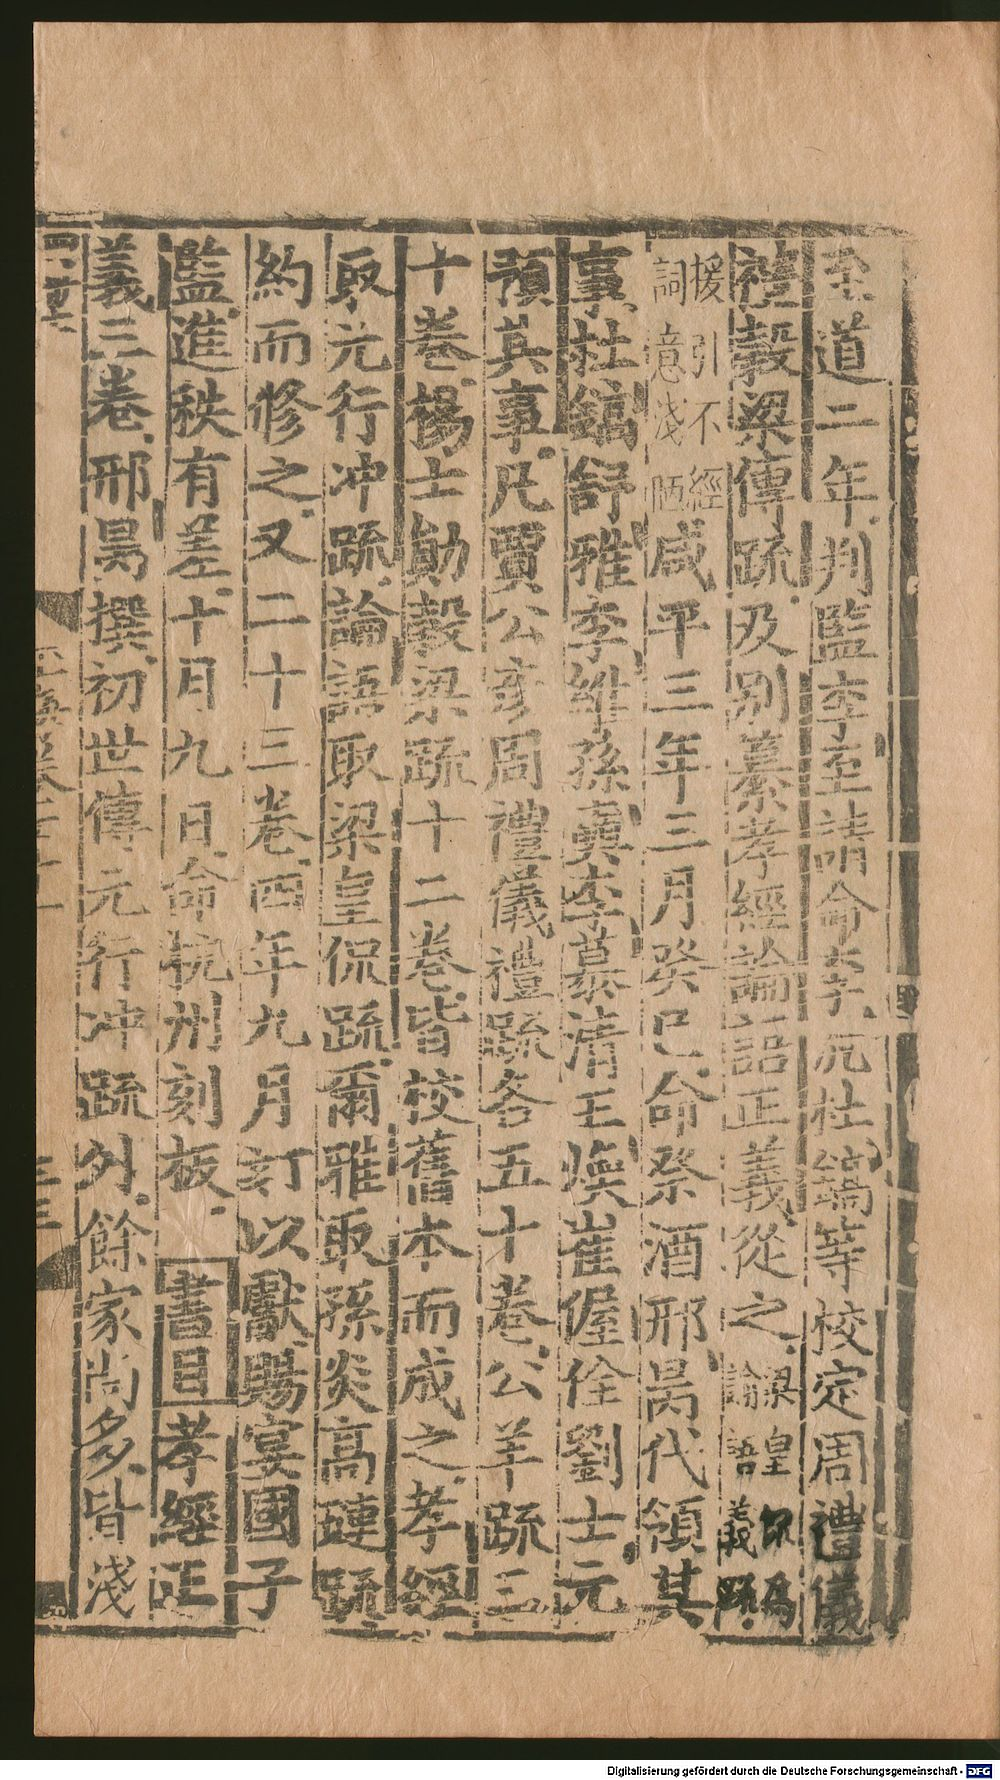 至道二年判監李至請命李沆杜鎬等校定周禮儀
禮穀梁傳疏及别纂孝經論語正義從之梁皇侃爲論語義疏
援引不經詞意淺陋咸平三年三月癸巳命祭酒邢昺代領其
事杜鎬舒雅李維孫奭李慕清王煥崔偓佺劉士元
預其事凡賈公彦周禮儀禮疏各五十卷公羊疏三
十卷楊士勛穀梁疏十二卷皆校舊本而成之孝經
取元行冲疏論語取梁皇侃疏爾雅取孫炎高璉疏
約而修之又二十三卷四年九月訂以獻賜宴國子
監進秩有差十月九日命杭州刻板 書目孝經正
義三卷邢昺撰初世傳元行冲疏外餘家尚多皆淺
Digitalisierung gefördert durch die Deutsche Forschungsgemeinschaft - DFG